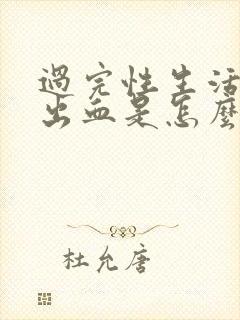 過完性生活
出血是怎麼
杜允唐